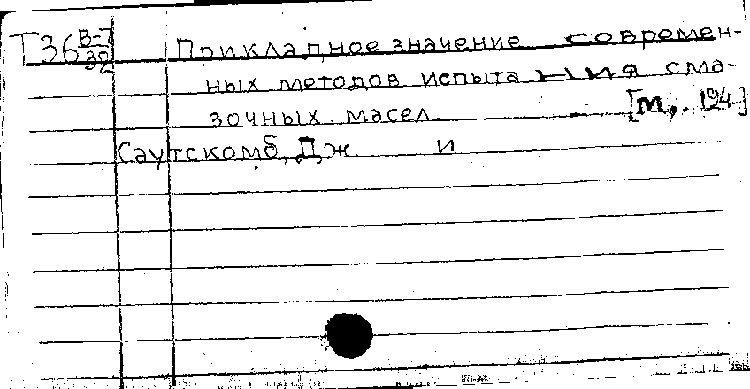 Т36 В-7/32 Прикладное значение современ-
ных методов испытания сма-
зочных масел [М., 194]
Саутскомб, Дж. и